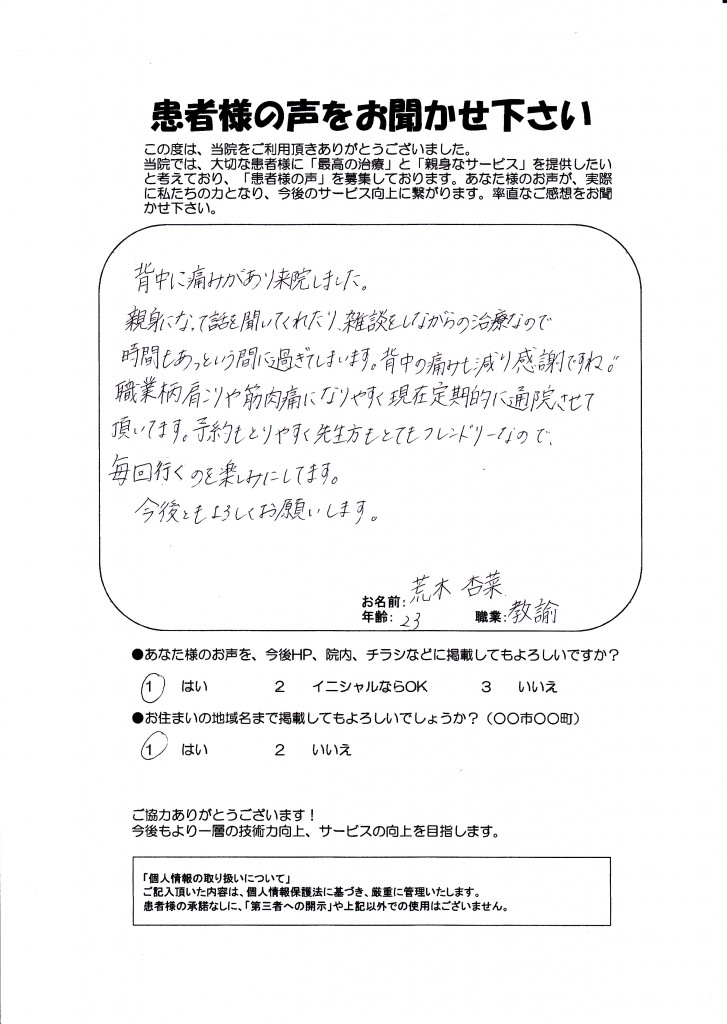 患者様の声をお聞かせ下さい
この度は、当院をご利用頂きありがとうございました。
当院では、大切な患者様に「最高の治療」と「親身なサービス」を提供したい
と考えており、「患者様の声」を募集しております。あなた様のお声が、実際
に私たちの力となり、今後のサービス向上に繋がります。率直なご感想をお聞
かせ下さい。
背中に痛みがあり来院しました。
親身になって話を聞いてくれたり、雑談をしながらの治療なので
時間もあっという間に過ぎてしまいます。背中の痛みも減り感謝ですね。
職業柄肩こりや筋肉痛になりやすく現在定期的に通院させて
頂いてます。予約もとりやすく先生方もとてもフレンドリーなので、
毎回行くのを楽しみにしてます。
今後ともよろしくお願いします。
お名前: 荒木 杏菜
年齢: 23 職業: 教諭
●あなた様のお声を、今後HP、院内、チラシなどに掲載してもよろしいですか？
1 はい 2 イニシャルならOK 3 いいえ
●お住まいの地域名まで掲載してもよろしいでしょうか？（〇〇市〇〇町）
1 はい 2 いいえ
ご協力ありがとうございます！
今後もより一層の技術力向上、サービスの向上を目指します。
「個人情報の取り扱いについて」
ご記入頂いた内容は、個人情報保護法に基づき、厳重に管理いたします。
患者様の承諾なしに、「第三者への開示」や上記以外での使用はございません。